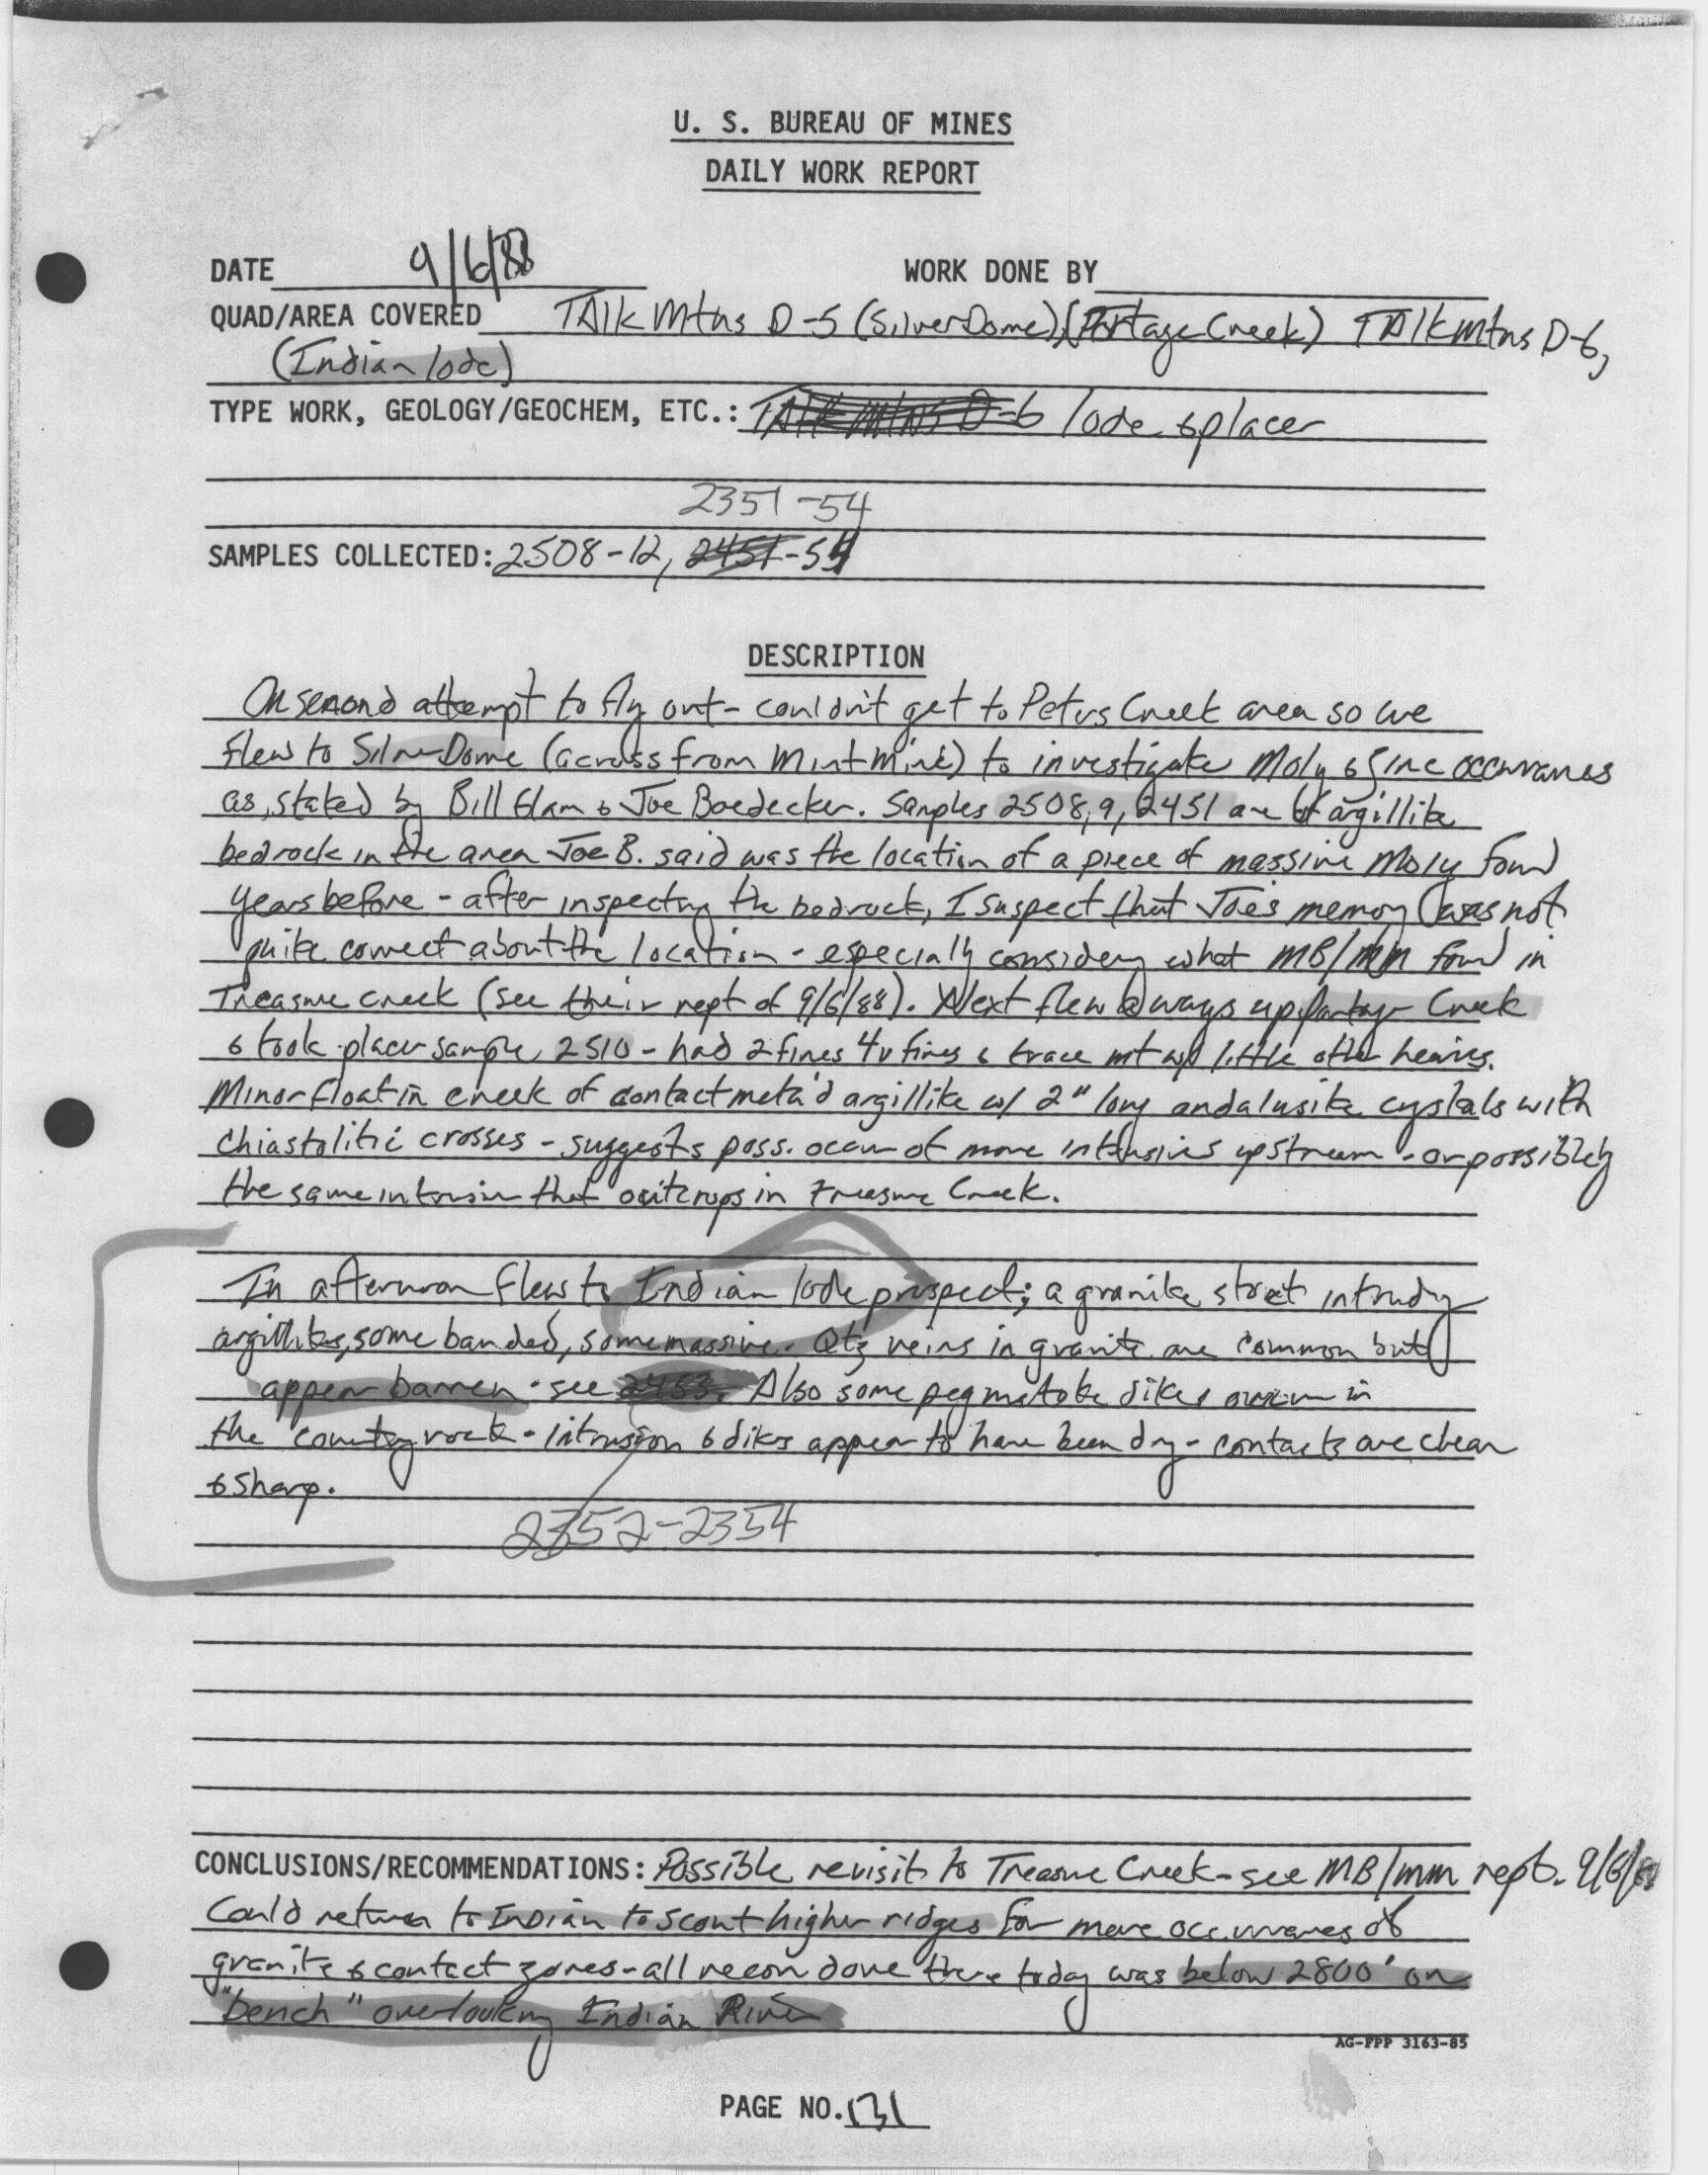 U. S. BUREAU OF MINES
DAILY WORK REPORT
DATE 9/6/88 WORK DONE BY
QUAD/AREA COVERED TAlk Mtns D-5 (Silver Dome), (Portage Creek) TAlk mtns D-6,
(Indian lode)
TYPE WORK, GEOLOGY/GEOCHEM, ETC.: TAlk Mtns D-6 lode & placer
2351-54
SAMPLES COLLECTED: 2508-12, 2451-54
DESCRIPTION
On second attempt to fly out - couldn't get to Peters Creek area so we
flew to Silver Dome (across from Mint Mine) to investigate Moly & zinc occurrances
as stated by Bill & Joe Boedecker. Samples 2508, 9, 2451 are of argillite
bedrock in the area Joe B. said was the location of a piece of massive Moly found
years before - after inspecting the bedrock, I suspect that Joe's memory was not
quite correct about the location - especially considering what MB/MM found in
Treasure creek (see their rept of 9/6/88). Next flew a ways up Portage Creek
& took placer sample 2510 - had 2 fines 4 v fines & trace mt w/ little other heavies.
Minor float in creek of contact meta'd argillite w/ 2" long andalusite crystals with
chiastolitic crosses - suggests poss. occur of more intrusives upstream - or possibley
the same intrusive that outcrops in Treasure Creek.
In afternoon flew to Indian lode prospect; a granite stock intrudy
argillites, some banded, some massive. Qtz veins in granite are common but
appear barren - see 2453. Also some pegmatite dikes occur in
the country rock - intrusion & dikes appear to have been dry - contacts are clean
& sharp.
2352-2354
CONCLUSIONS/RECOMMENDATIONS: Possible revisit to Treasure Creek - see MB/mm rept. 9/6/88
Could return to Indian to scout higher ridges for more occurrances of
granite & contact zones - all recon done there today was below 2800' on
"bench" overlooking Indian River
AG-FPP 3163-85
PAGE NO. 131